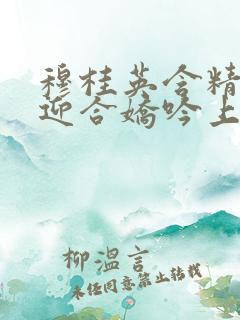 穆桂英含精
迎合嬌吟上
柳溫言
未经同意禁止转载